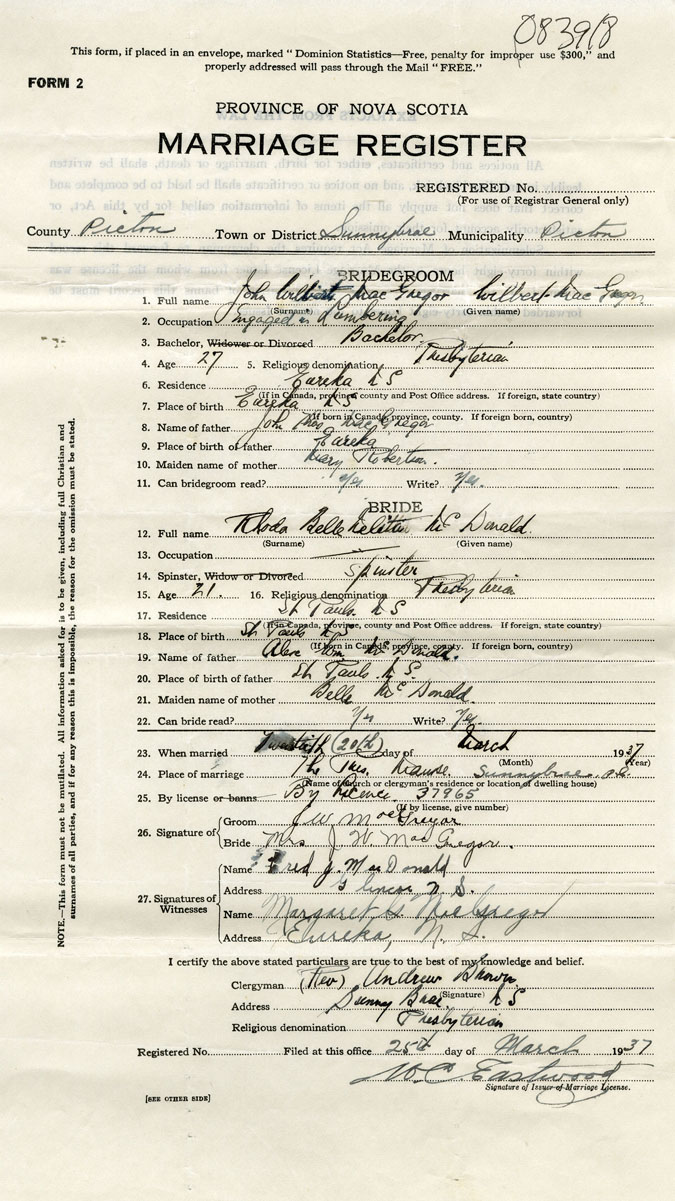 083918
This form, if placed in an envelope, marked "Dominion Statistics—Free, penalty for improper use $300," and
properly addressed will pass through the Mail "FREE."
FORM 2
PROVINCE OF NOVA SCOTIA
MARRIAGE REGISTER
REGISTERED No.
(For use of Registrar General only)
County Pictou Town or District Sunnybrae Municipality Pictou
BRIDEGROOM
1. Full name John Wilbert MacGregor Wilbert MacGregor
(Surname) (Given name)
2. Occupation Engaged in Lumbering
3. Bachelor, Widower or Divorced Bachelor
4. Age 27 5. Religious denomination Presbyterian
6. Residence Eureka N S
(If in Canada, province, county and Post Office address. If foreign, state country)
7. Place of birth Eureka N S
(If born in Canada, province, county. If foreign born, country)
8. Name of father John Thos. MacGregor
9. Place of birth of father Eureka
10. Maiden name of mother Mary Robertson.
11. Can bridegroom read? Yes Write? Yes.
BRIDE
12. Full name Rhoda Belle McDonald.
(Surname) (Given name)
13. Occupation
14. Spinster, Widow or Divorced Spinster
15. Age 21. 16. Religious denomination Presbyterian
17. Residence St Pauls. N S
(If in Canada, province, county and Post Office address. If foreign, state country)
18. Place of birth St Pauls N S
(If born in Canada, province, county. If foreign born, country)
19. Name of father Alex McDonald.
20. Place of birth of father St Pauls N S.
21. Maiden name of mother Belle McDonald.
22. Can bride read? Yes Write? Yes.
23. When married Twentieth (20th) day of March 1937
(Month) (Year)
24. Place of marriage The Pres. Manse Sunnybrae.
(Name of church or clergyman's residence or location of dwelling house)
25. By license or banns By Licence 37965
(If by license, give number)
26. Signature of
Groom J W MacGregor
Bride Mrs J. W. MacGregor.
27. Signatures of Witnesses
Name Fred J. MacDonald
Address N S.
Name Margaret G MacGregor
Address Eureka, N. S.
I certify the above stated particulars are true to the best of my knowledge and belief.
Clergyman (Rev) Andrew Brown
(Signature)
Address Sunny Brae. N S
Religious denomination Presbyterian
Registered No. Filed at this office 25th day of March 1937
Eastwood
Signature of Issuer of Marriage License.
[SEE OTHER SIDE]
NOTE.—This form must not be mutilated. All information asked for is to be given, including full Christian and
surnames of all parties, and if for any reason this is impossible, the reason for the omission must be stated.